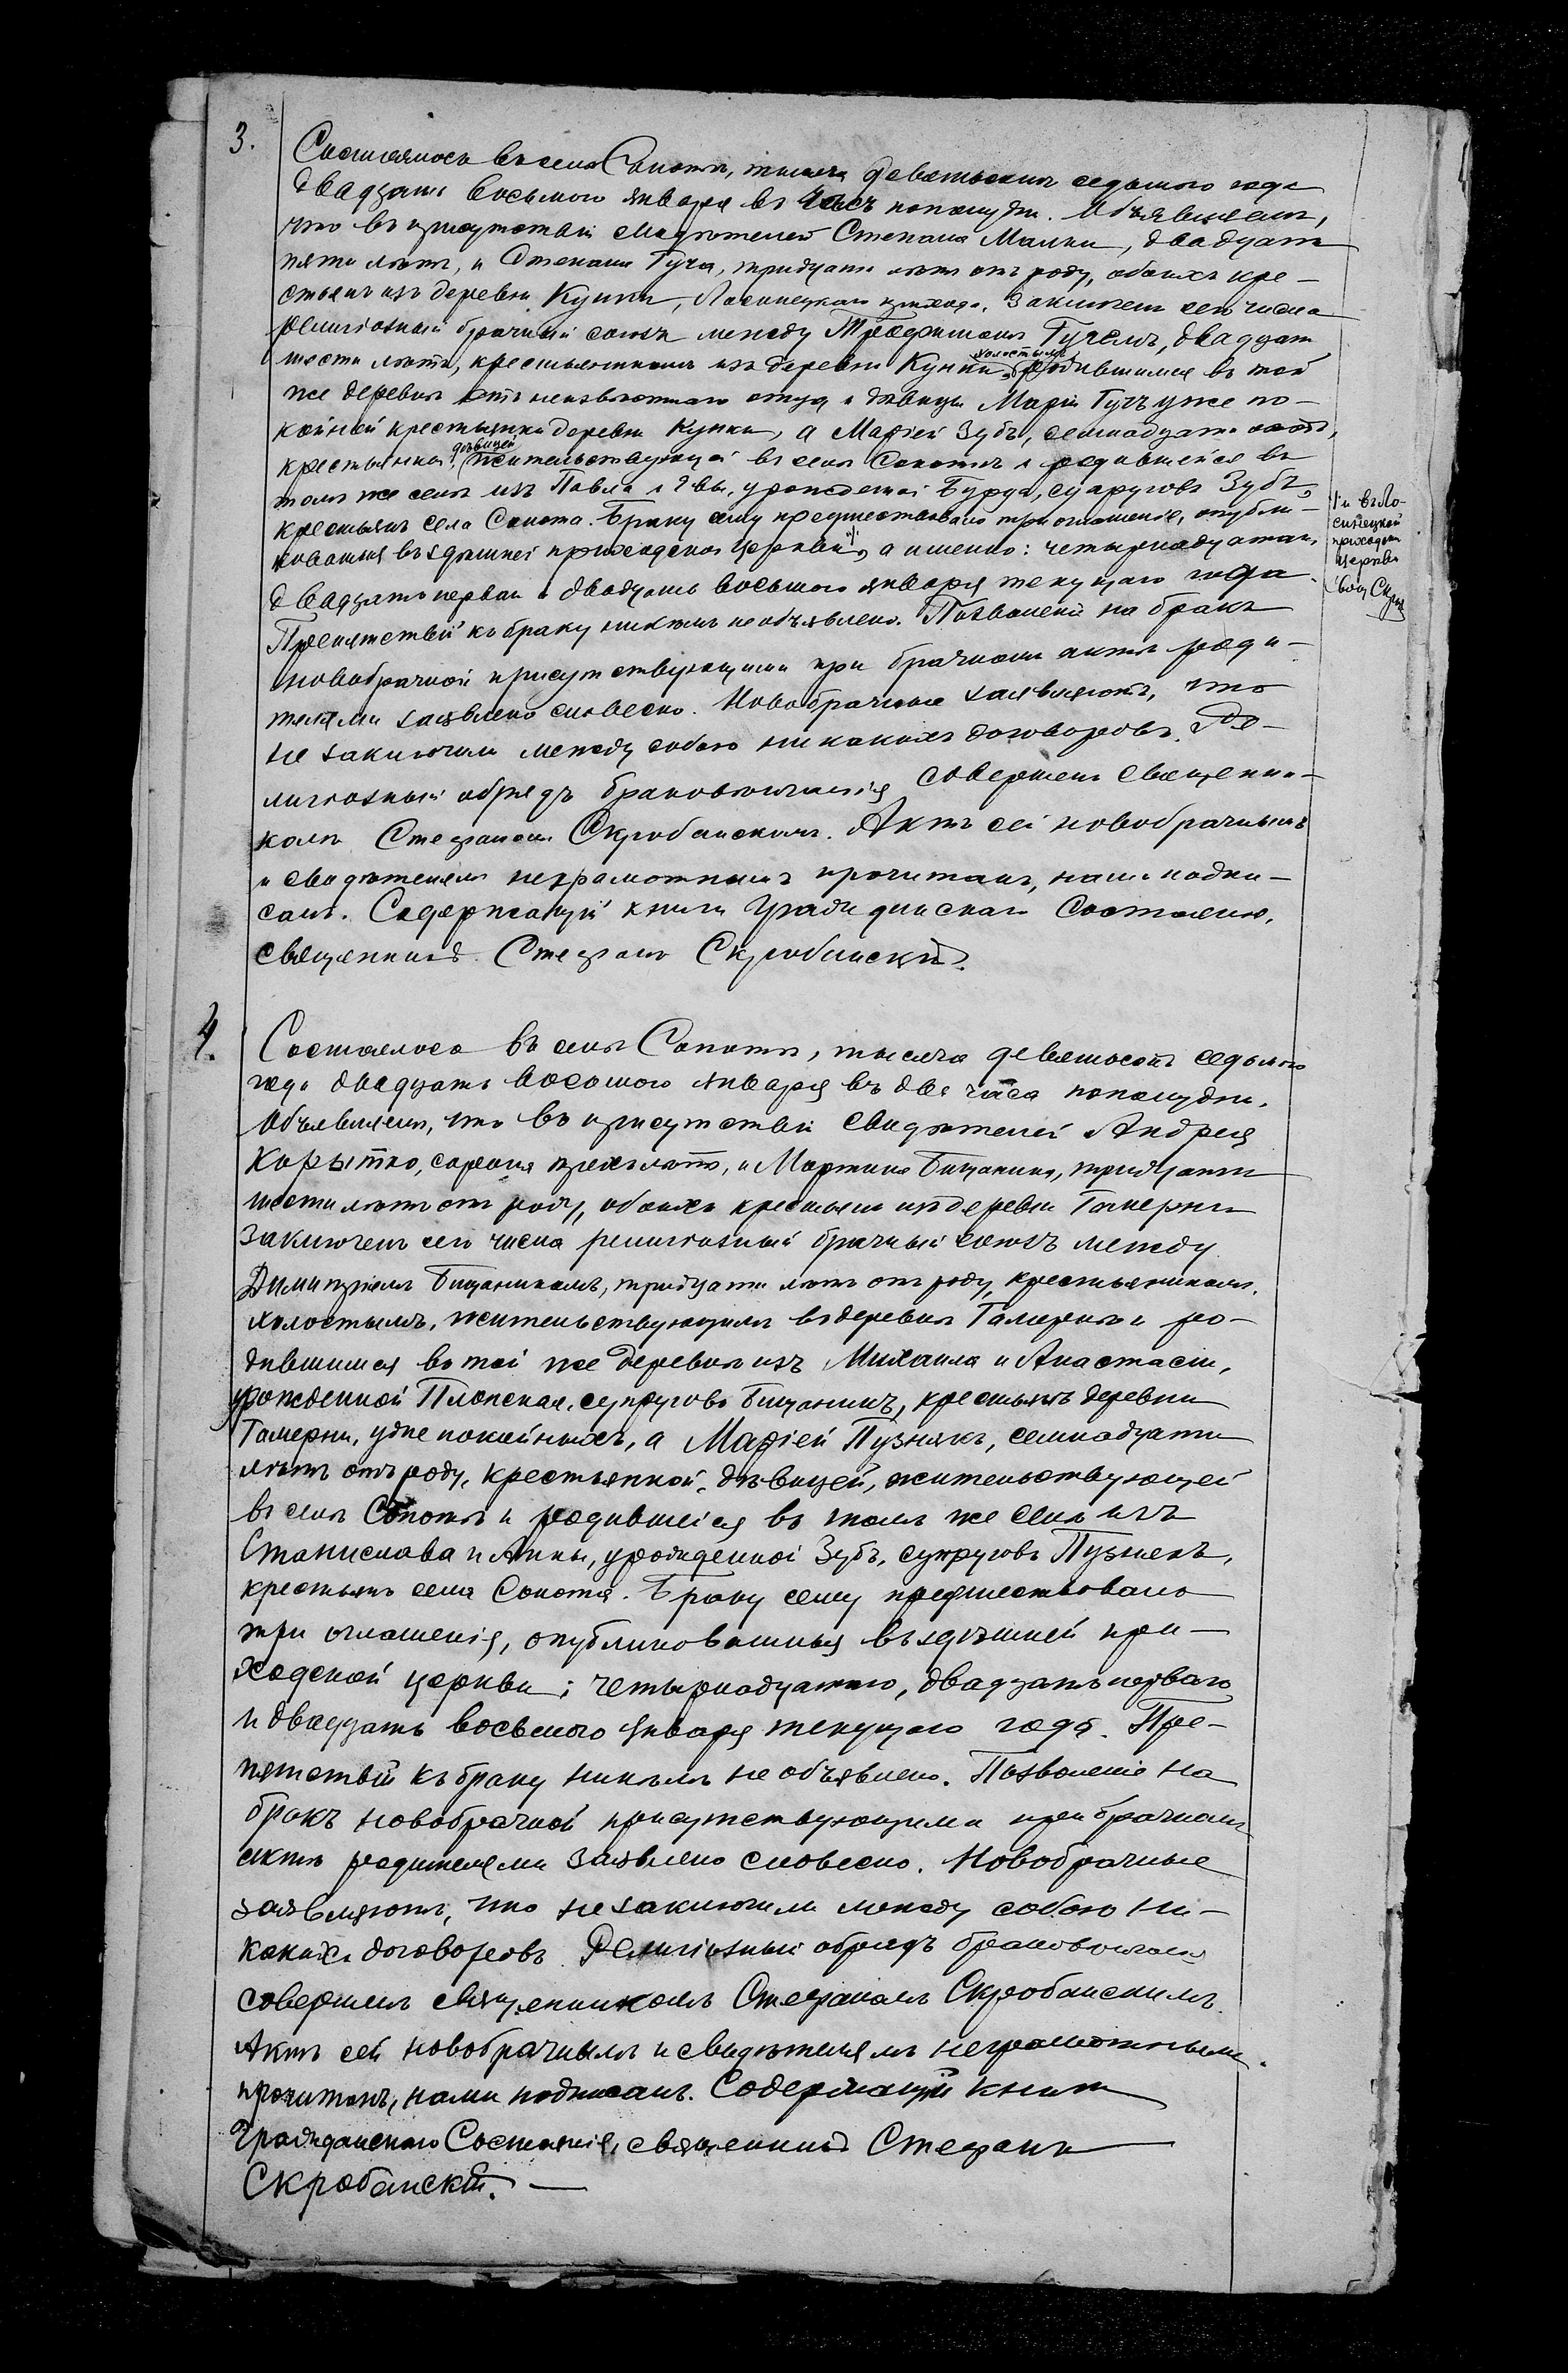 3.
Состоялось въ селѣ Сопотѣ, тысяча девятьсотъ седьмого года
двадцать восьмого января въ часъ пополудни. Объявляемъ,
что въ присутствіи свидѣтелей Степана Малки, двадцати
пяти лѣтъ, и Степана Гуча, тридцати лѣтъ отъ роду, обоихъ кре-
стьянъ изъ деревни Кунки, Лосинецкаго прихода, заключенъ сего числа
религіозный брачный союзъ между Трофимомъ Гучемъ, двадцати
шести лѣтъ, крестьяниномъ изъ деревни Кунки, холостымъ, родившимся въ той
же деревнѣ отъ неизвѣстнаго отца и дѣвицы Маріи Гучъ уже по-
койной крестьянки деревни Кунки, а Маріей Зубъ, семнадцати лѣтъ,
крестьянкой, дѣвицей, жительствующей въ селѣ Сопотѣ и родившейся въ
томъ же селѣ изъ Павла и Евы, урожденной Бурда, супруговъ Зубъ,
крестьянъ села Сопота. Браку сему предшествовало три оглашенія, опубли-
кованныя въ здѣшней приходской церкви, а именно: четырнадцатаго,
двадцать перваго и двадцать восьмого января текущаго года.
Препятствій къ браку никѣмъ не объявлено. Позволеніе на бракъ
новобрачной присутствующими при брачномъ актѣ роди-
телями заявлено словесно. Новобрачные заявляютъ, что
не заключили между собою никакихъ договоровъ. Ре-
лигіозный обрядъ бракосочетанія совершенъ священни-
комъ Стефаномъ Скробанскимъ. Актъ сей новобрачнымъ
и свидѣтелямъ неграмотнымъ прочитанъ, нами подпи-
санъ. Содержащій книги Гражданскаго Состоянія,
священникъ Стефанъ Скробанскій.
и въ Ло-
синецкой
приходской
церкви
4.
Состоялось въ селѣ Сопотѣ, тысяча девятьсотъ седьмого
года двадцать восьмого января въ два часа пополудни.
Объявляемъ, что въ присутствіи свидѣтелей Андрея
Корытко, сорока трехъ лѣтъ, и Мартина Бицанина, тридцати
шести лѣтъ отъ роду, обоихъ крестьянъ изъ деревни Гамерни
заключенъ сего числа религіозный брачный союзъ между
Димитріемъ Бицаниномъ, тридцати лѣтъ отъ роду, крестьяниномъ,
холостымъ, жительствующимъ въ деревнѣ Гамернѣ и ро-
дившимся въ той же деревнѣ изъ Михаила и Анастасіи,
урожденной Плонская, супруговъ Бицанинъ, крестьянъ деревни
Гамерни, уже покойныхъ, а Маріей Пузнякъ, семнадцати
лѣтъ отъ роду, крестьянкой, дѣвицей, жительствующей
въ селѣ Сопотѣ и родившейся въ томъ же селѣ изъ
Станислава и Анны, урожденной Зубъ, супруговъ Пузнякъ,
крестьянъ села Сопота. Браку сему предшествовало
три оглашенія, опубликованныя въ здѣшней при-
ходской церкви: четырнадцатаго, двадцать перваго
и двадцать восьмого января текущаго года. Пре-
пятствій къ браку никѣмъ не объявлено. Позволеніе на
бракъ новобрачной присутствующими при брачномъ
актѣ родителями заявлено словесно. Новобрачные
заявляютъ, что не заключили между собою ни-
какихъ договоровъ. Религіозный обрядъ бракосочетанія
совершенъ священникомъ Стефаномъ Скробанскимъ.
Актъ сей новобрачнымъ и свидѣтелямъ неграмотнымъ
прочитанъ, нами подписанъ. Содержащій книги
Гражданскаго Состоянія, священникъ Стефанъ
Скробанскій.